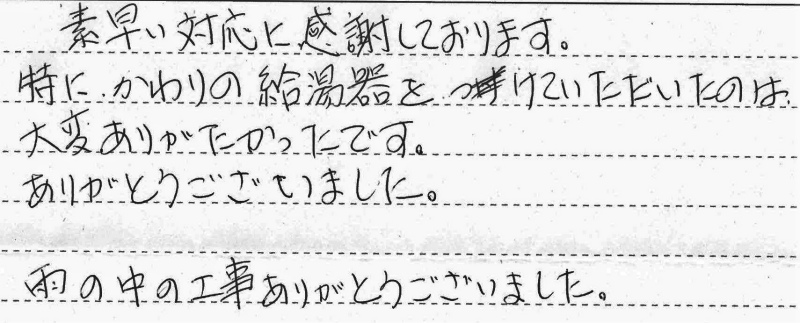 素早い対応に感謝しております。
特に、かわりの給湯器をつけていただいたのは、
大変ありがたかったです。
ありがとうございました。
雨の中の工事ありがとうございました。